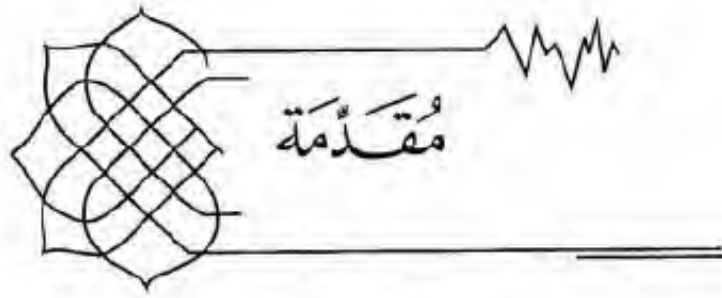 مُقَدَّمَة